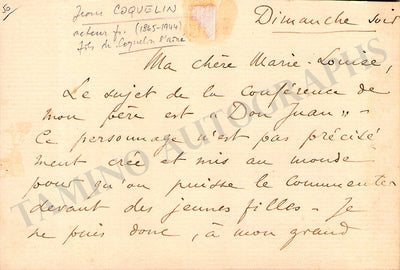 50/
Jean COQUELIN
acteur fr. (1865-1944)
fils de Coquelin l'Aîné
Dimanche soir
Ma chère Marie-Louise,
Le sujet de la conférence de
mon père est "Don Juan" -
Ce personnage n'est pas précisé-
ment créé et mis au monde
pour qu'on puisse le commenter
devant des jeunes filles - Je
ne puis donc, à mon grand
TAMINO AUTOGRAPHS